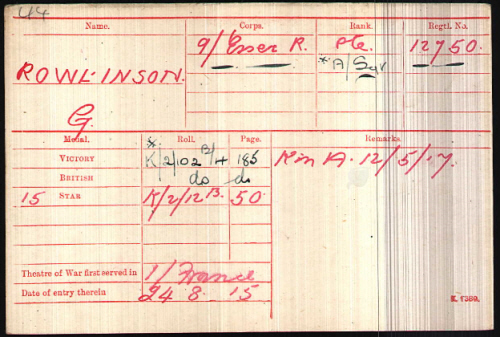 Name. Corps. Rank. Regtl. No.
ROWLINSON. 9/Essex R. Pte. 12750.
*A/Sgt
G.
Medal. Roll. Page. Remarks.
VICTORY * K/2/102 B/4 185 K in A. 12/5/17.
BRITISH do do
15 STAR K/2/12 B. 50.
Theatre of War first served in 1/ France
Date of entry therein 24 8. 15
K. 1380.